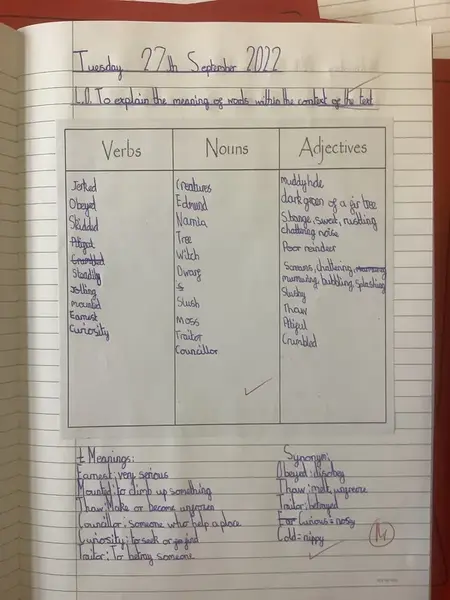 Tuesday 27th September 2022
L.O. To explain the meaning of words within the context of the text
Verbs
Jerked
Obeyed
Skidded
Pitiful
Crumbled
Steadily
Jolting
mounted
Earnest
Curiosity
Nouns
Creatures
Edmund
Narnia
Tree
Witch
Dwarf
Slush
Moss
Traitor
Councillor
Adjectives
muddy hole
dark green of a fir tree
Strange, sweet, rustling
chattering noise
Poor reindeer
Screams, chattering,
murmuring, bubbling, splashing
Slushy
Thaw
Pitiful
Crumbled
Meanings:
Earnest: very serious
Mounted: to climb up something
Thaw: Make or become unfrozen
Councillor: someone who help a place
Curiosity: to seek or go find
Traitor: To betray someone
Synonyms:
Obeyed: disobey
Thaw: melt,
Traitor: betrayed
Curious = nosey
Cold = nippy
M